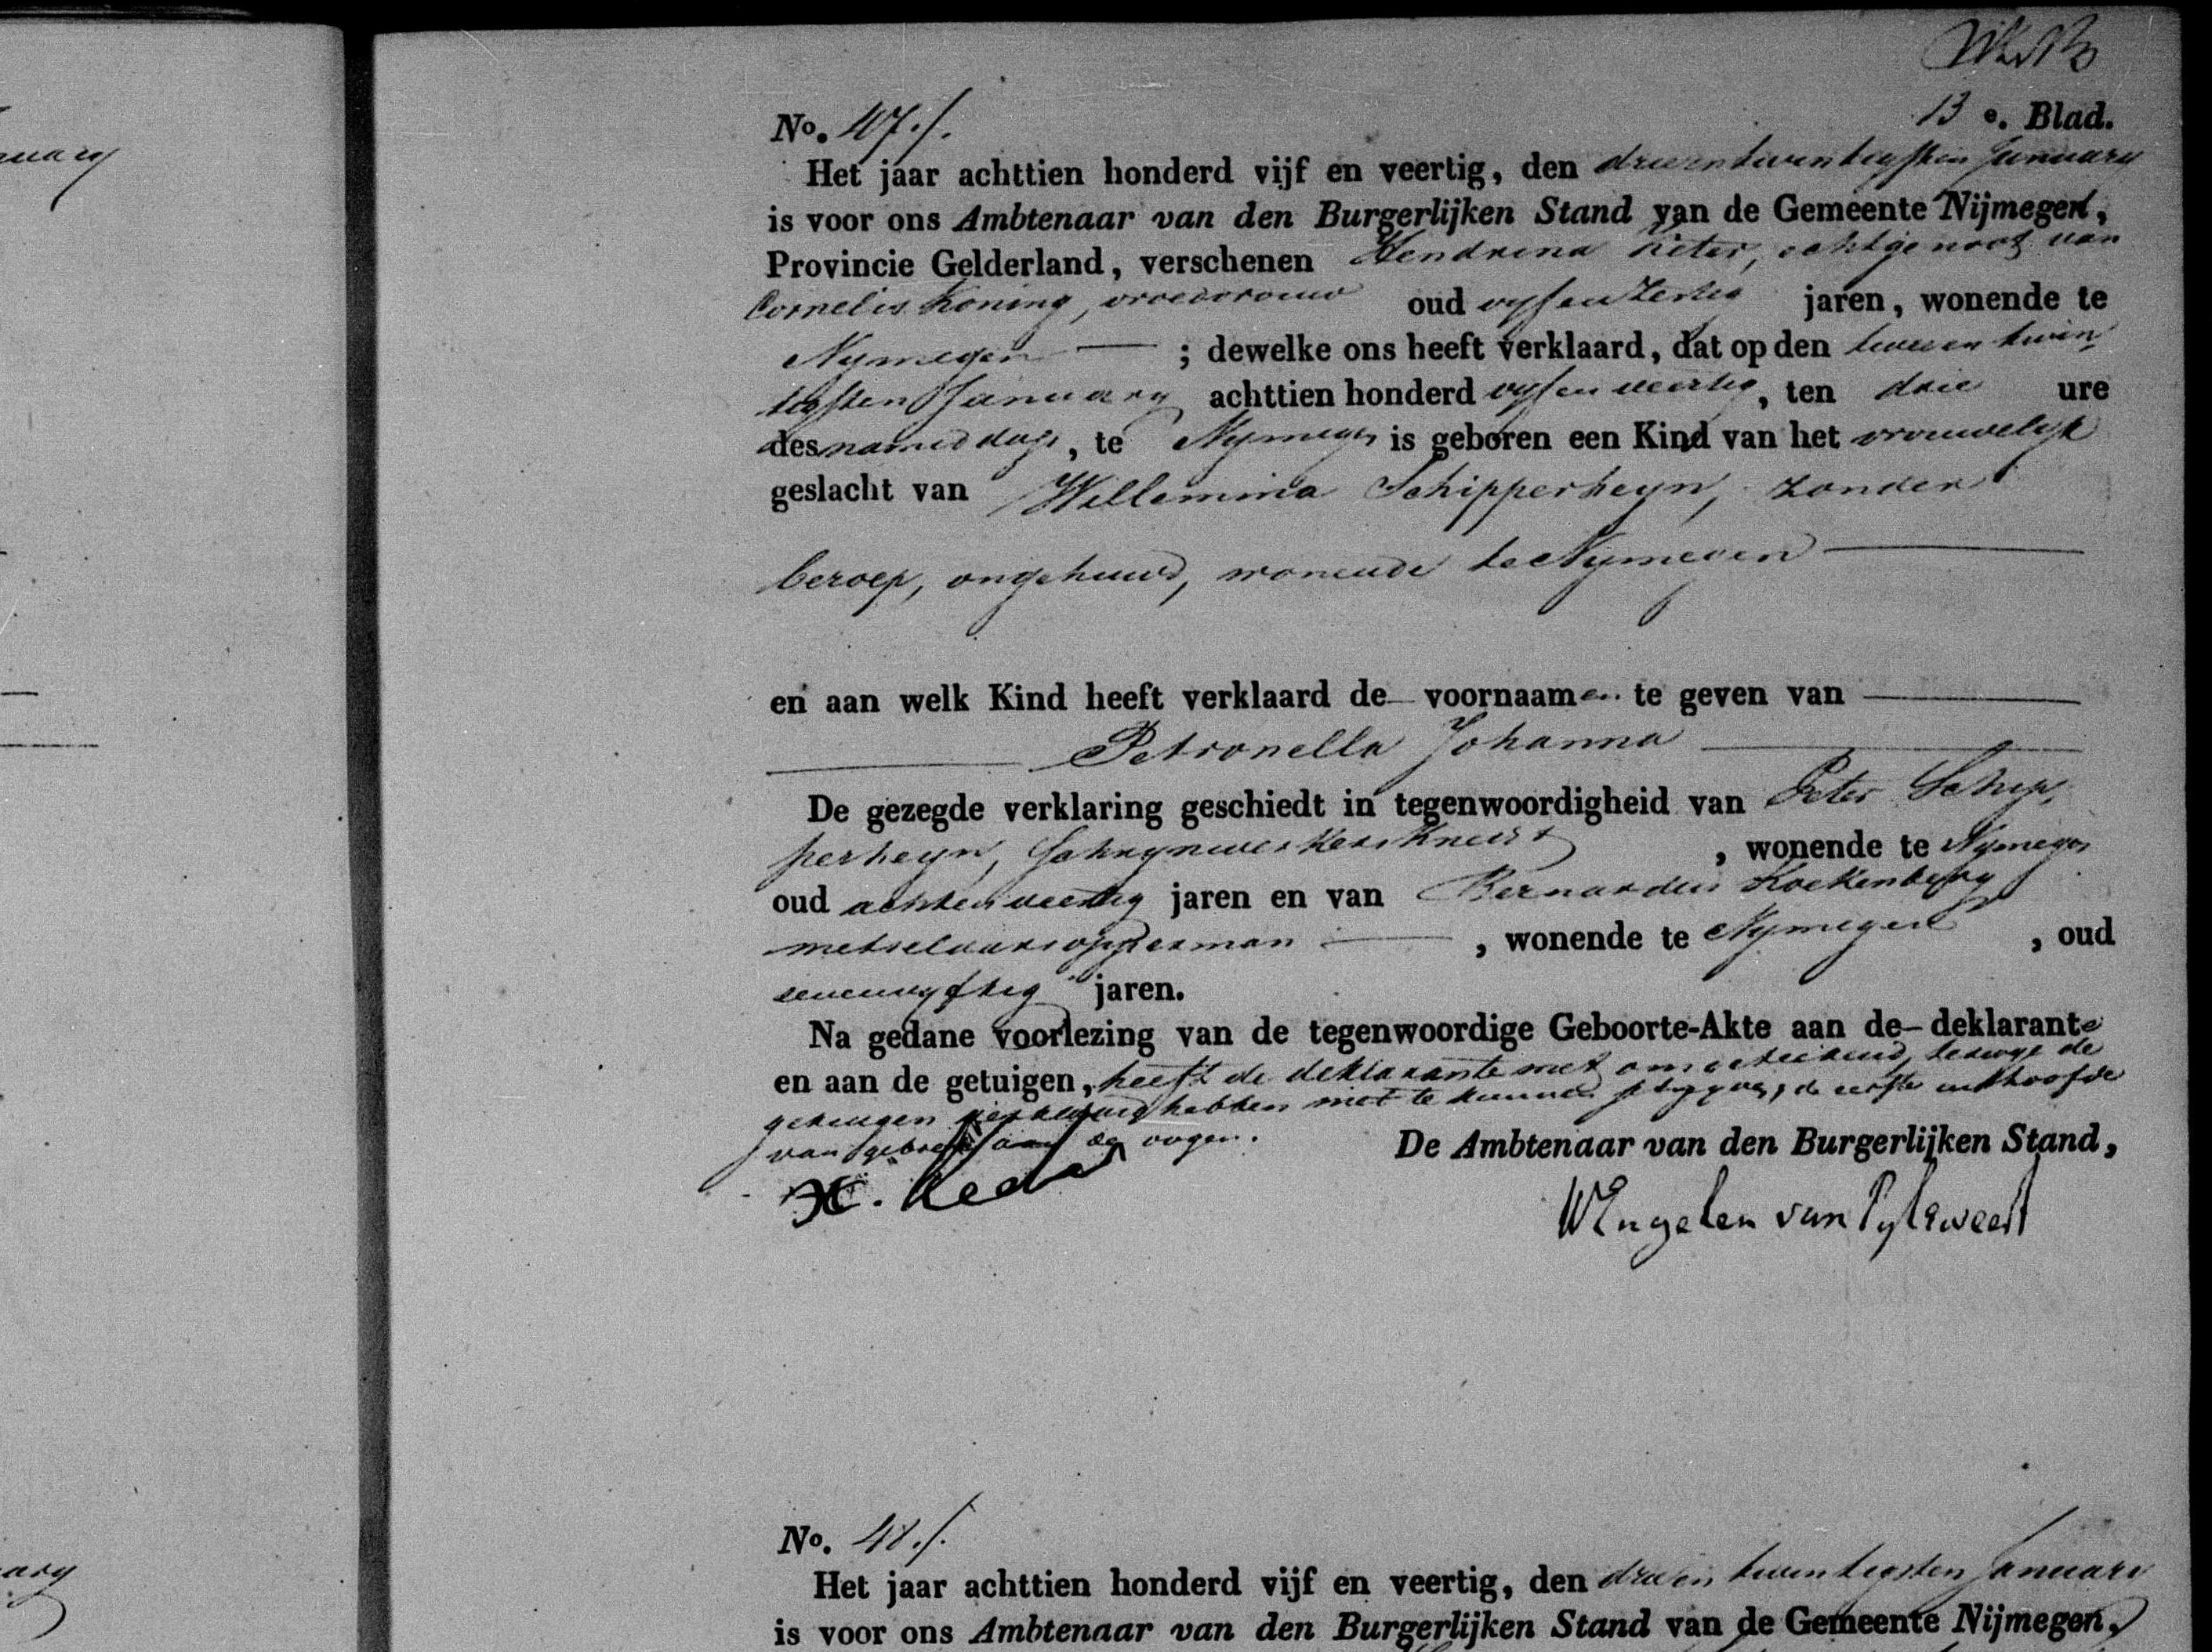 13 e. Blad.
No. 47./.
Het jaar achttien honderd vijf en veertig, den drieentwintigsten January
is voor ons Ambtenaar van den Burgerlijken Stand van de Gemeente Nijmegen,
Provincie Gelderland, verschenen Hendrina Keter, echtgenoot van
Cornelis Koning, vroedvrouw oud vyfenzestig jaren, wonende te
Nymegen ; dewelke ons heeft verklaard, dat op den tweeentwin
tigsten January achttien honderd vyfenveertig, ten drie ure
des namiddags, te Nymegen is geboren een Kind van het vrouwelyk
geslacht van Willemina Schipperheyn, zonder
beroep, ongehuwd, wonende te Nymegen
en aan welk Kind heeft verklaard de voornaamen te geven van
Petronella Johanna
De gezegde verklaring geschiedt in tegenwoordigheid van Peter Schip,
perheyn, Schrynwerkersknecht, wonende te Nymegen
oud achtenveertig jaren en van Bernardus Koekenberg
metselaarsopperman , wonende te Nymegen , oud
zevenvyftig jaren.
Na gedane voorlezing van de tegenwoordige Geboorte-Akte aan de deklarante
en aan de getuigen, heeft de deklarante met ons geteekend, terwyl de
getuigen verklaard hebben niet te kunnen schryven, de eerste uit hoofde
van gebrek aan de oogen.
De Ambtenaar van den Burgerlijken Stand,
H. Keder
WEngelen van Pylsweert
No. 48./.
Het jaar achttien honderd vijf en veertig, den drieentwintigsten January
is voor ons Ambtenaar van den Burgerlijken Stand van de Gemeente Nijmegen,